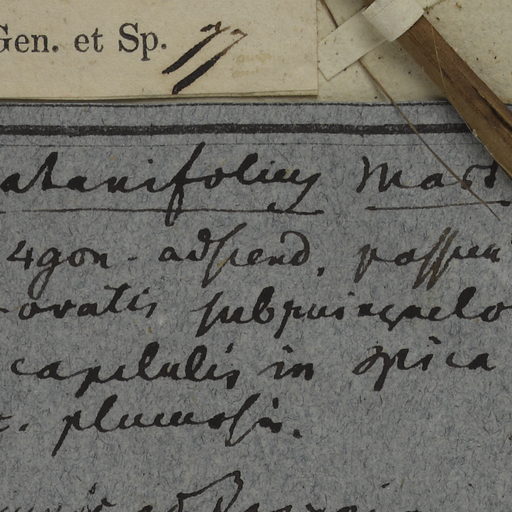 Gen. et Sp. 77
atanifolium Mart
4gon. adspend,
-ovatis subquinquelo
capitulis in spica
t. plumosis.